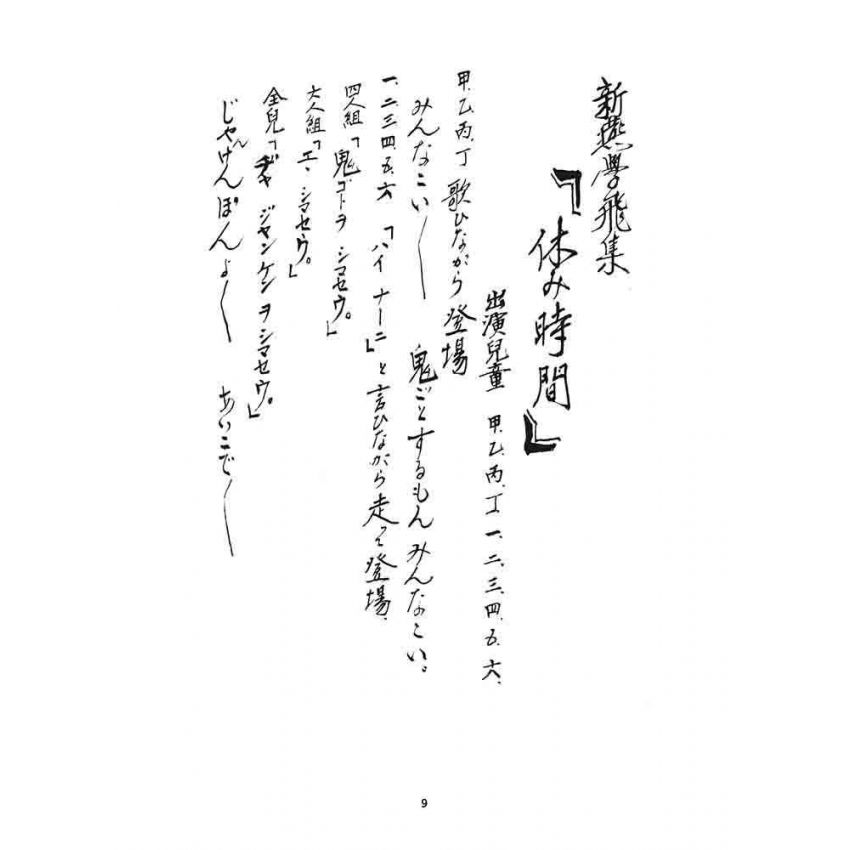 新燕學飛集
『休み時間』
出演兒童 甲、乙、丙、丁 一、二、三、四、五、六、
甲、乙、丙、丁 歌ひながら 登場
みんなこい〳〵 鬼ごとするもんみんなこい。
一、二、三、四、五、六 「ハイ ナーニ」と言ひながら走って登場、
四人組「鬼ゴトヲ シマセウ。」
六人組「エ、シマセウ。」
全兒「ジャンケンヲシマセウ。」
じゃんけんぽんよ〳〵 あいこで〳〵
9